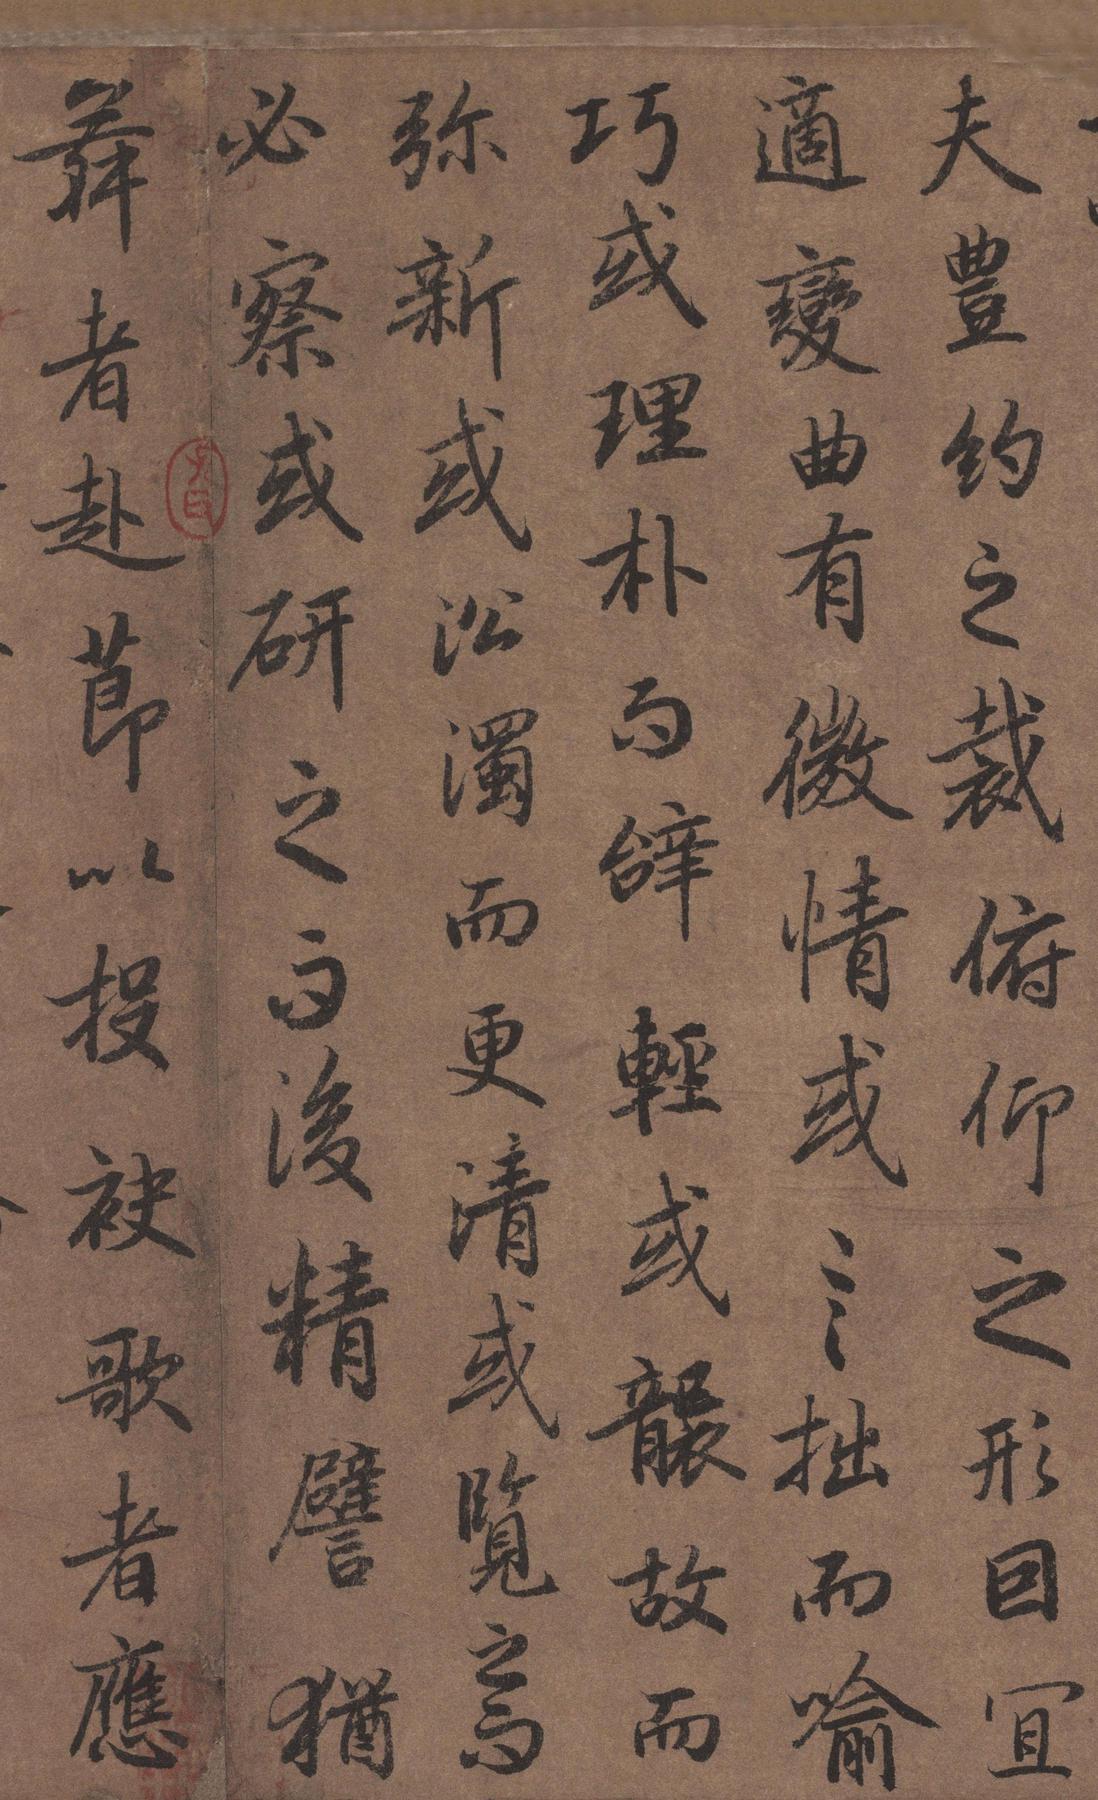 夫豊約之裁俯仰之形囙宜
適變曲有微情或言拙而喻
巧或理朴而辞輕或襲故而
弥新或沿濁而更清或覽之而
必察或研之而後精譬猶
舞者赴節以投袂歌者應